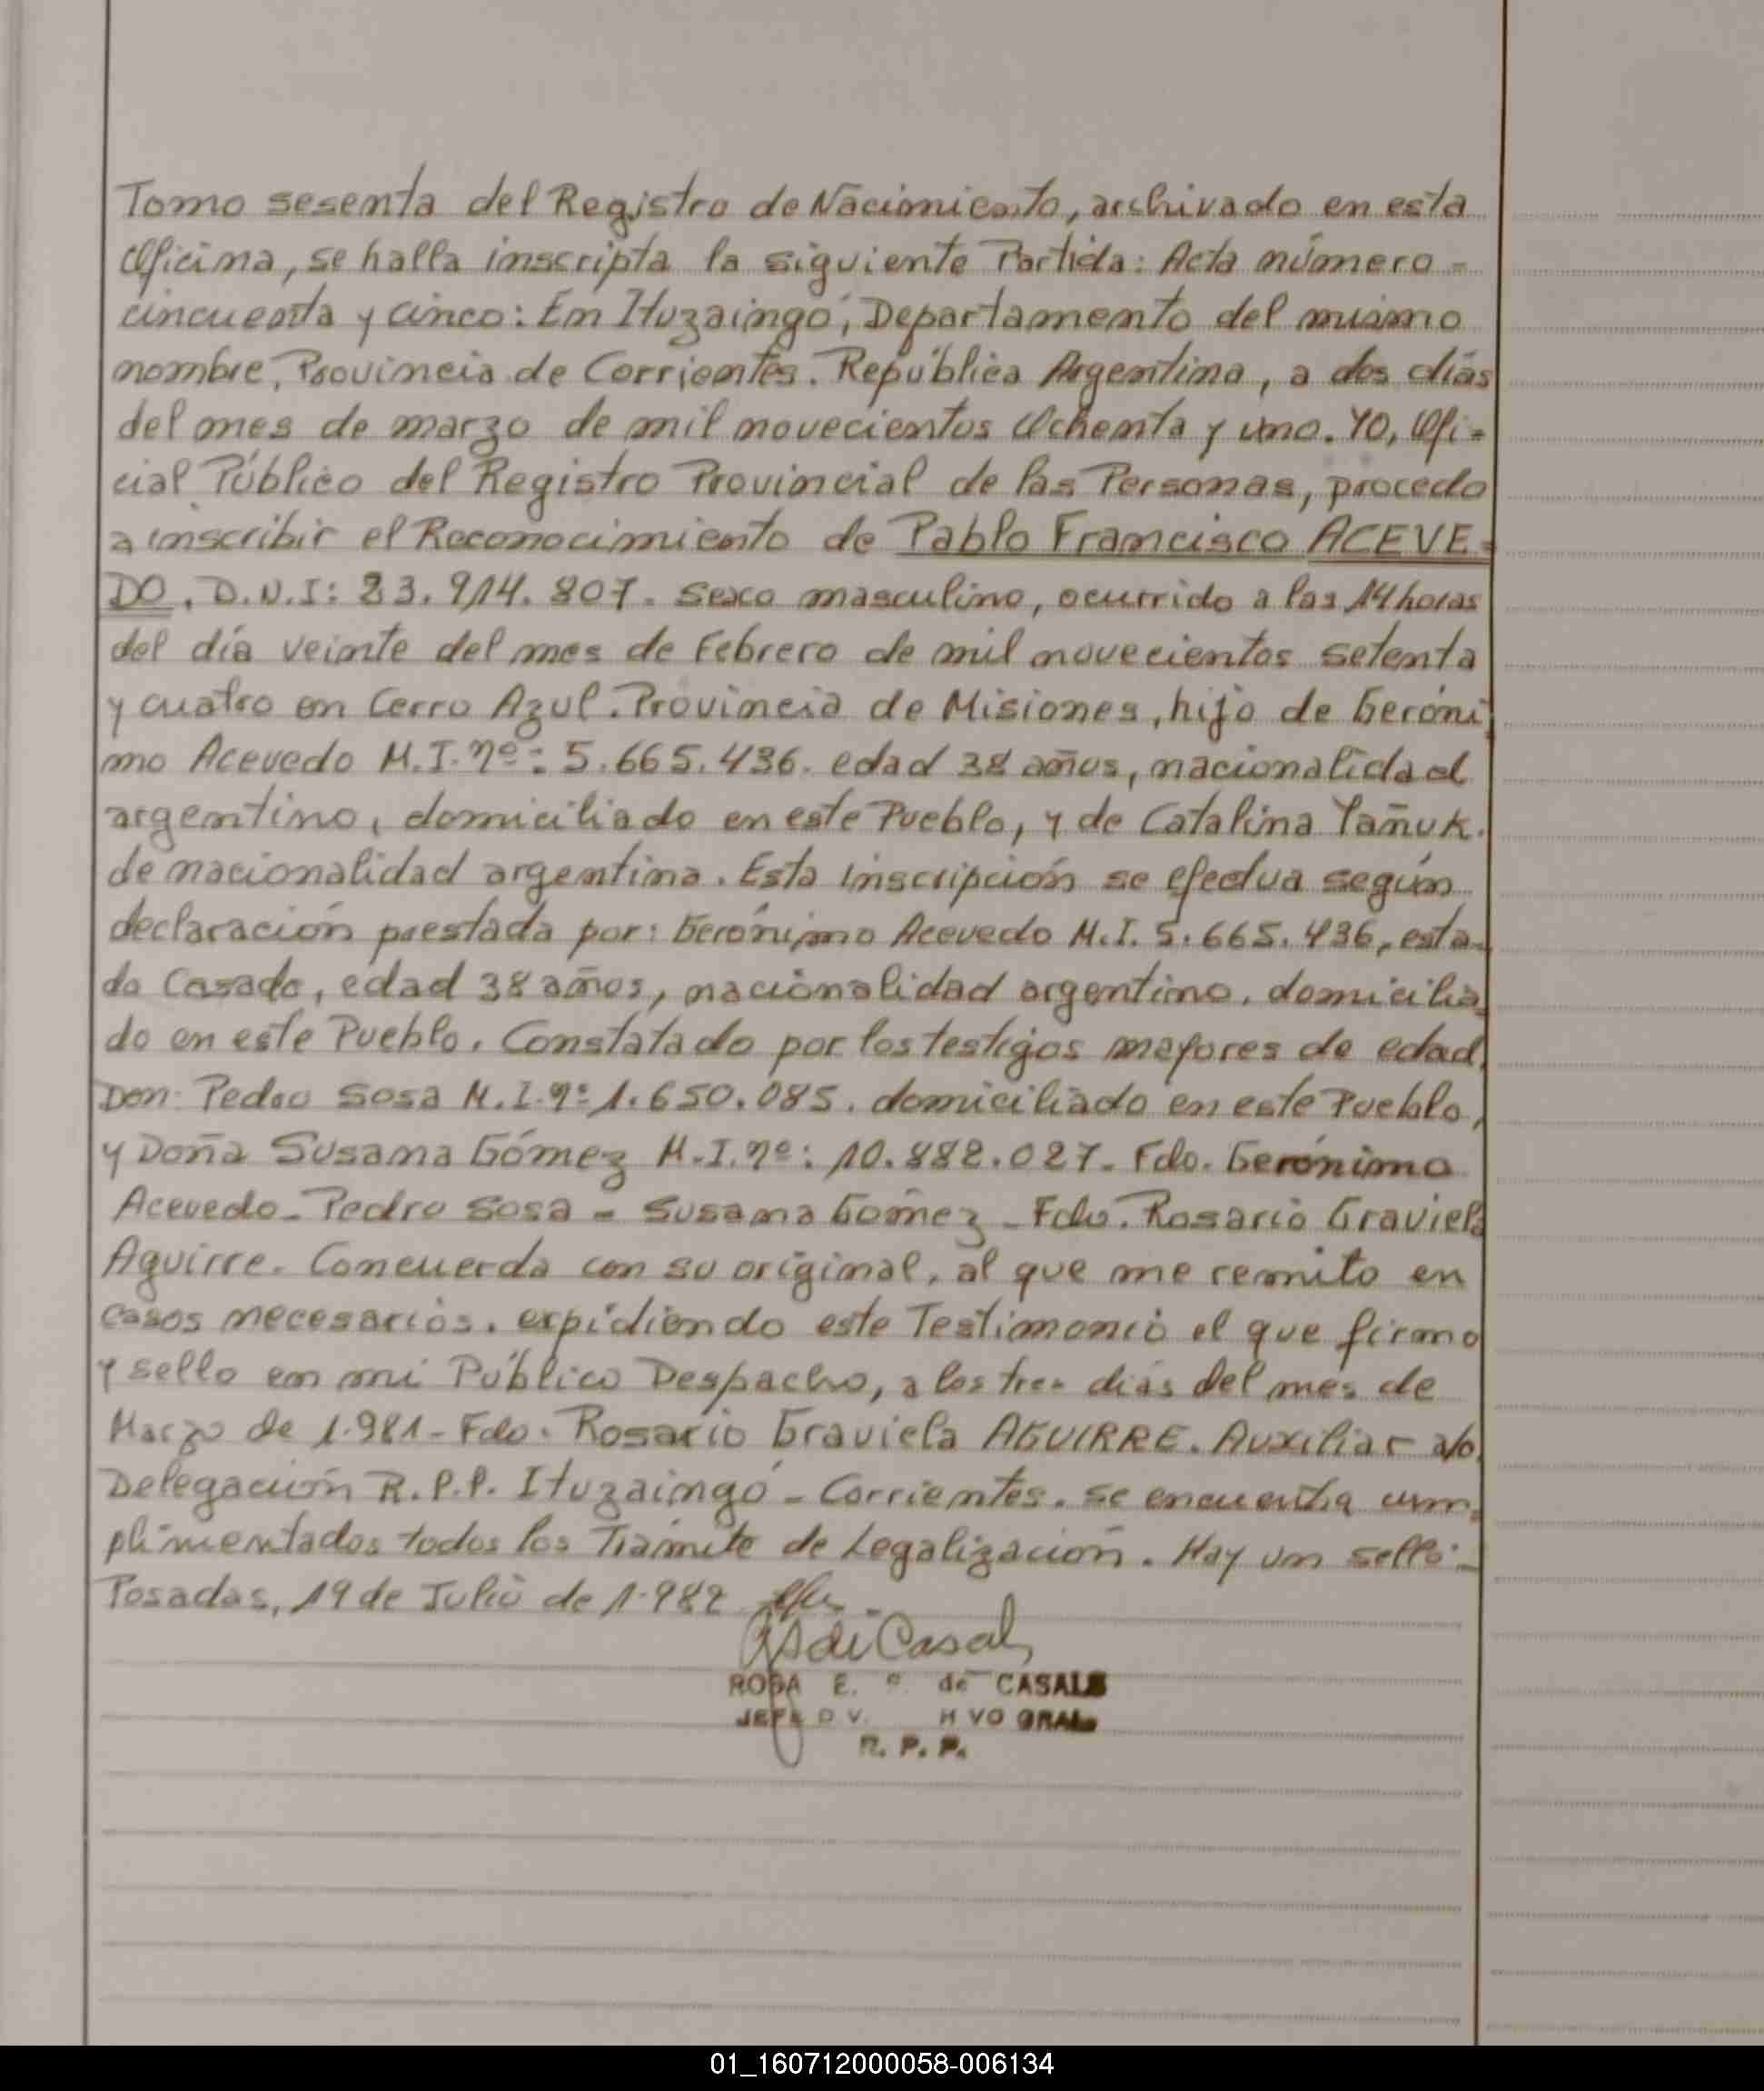 Tomo sesenta del Registro de Nacimiento, archivado en esta
Oficina, se halla inscripta la siguiente Partida: Acta número -
cincuenta y cinco: En Ituzaingó, Departamento del mismo
nombre, Provincia de Corrientes. República Argentina, a dos días
del mes de marzo de mil novecientos Ochenta y uno. YO, Ofi=
cial Público del Registro Provincial de las Personas, procedo
a inscribir el Reconocimiento de Pablo Francisco ACEVE=
DO, D.N.I: 23.914.807. Sexo masculino, ocurrido a las 14 horas
del día veinte del mes de Febrero de mil novecientos setenta
y cuatro en Cerro Azul. Provincia de Misiones, hijo de Geróni
mo Acevedo M.I.nº: 5.665.436. edad 38 años, nacionalidad
argentino, domiciliado en este Pueblo, y de Catalina Yañuk.
de nacionalidad argentina. Esta inscripción se efectua según
declaración prestada por: Gerónimo Acevedo M.I. 5.665.436, esta-
do Casado, edad 38 años, nacionalidad argentino, domicilia
do en este Pueblo. Constatado por los testigos mayores de edad,
Don: Pedro Sosa M.I.nº 1.650.085. domiciliado en este Pueblo,
y Doña Susana Gómez M.I.nº: 10.882.027. Fdo. Gerónimo
Acevedo - Pedro Sosa - Susana Gómez - Fdo. Rosario Graviela
Aguirre. Concuerda con su original, al que me remito en
casos necesarios. expidiendo este Testimonio el que firmo
y sello en mi Público Despacho, a los tres días del mes de
Marzo de 1.981 - Fdo. Rosario Graviela AGUIRRE. Auxiliar a/c
Delegación R.P.P. Ituzaingó - Corrientes. se encuentra cum-
plimentados todos los Trámite de Legalización. Hay un sello -
Posadas, 19 de Julio de 1.982
ROSA E. de CASALS
JEFE
R. P. P.
01_160712000058-006134